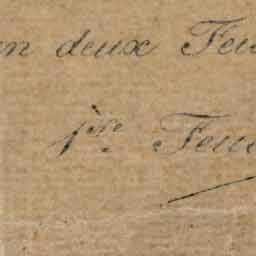 en deux Feu
1re Feu